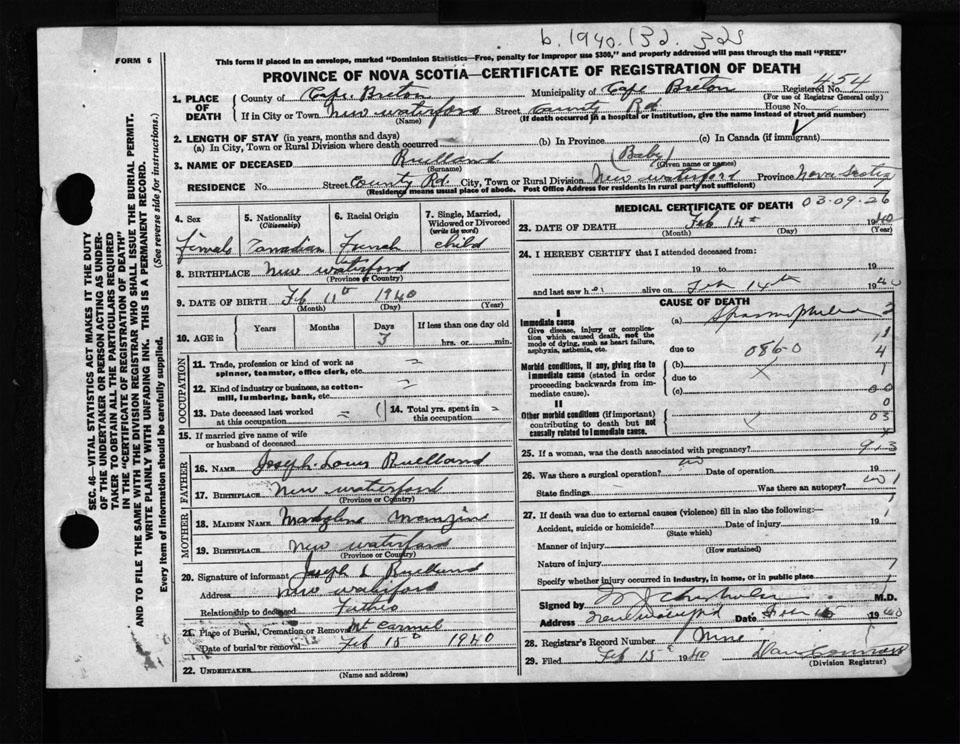 b. 1940. 132. 328
FORM 6
This form if placed in an envelope, marked "Dominion Statistics—Free, penalty for improper use $300," and properly addressed will pass through the mail "FREE"
PROVINCE OF NOVA SCOTIA—CERTIFICATE OF REGISTRATION OF DEATH
1. PLACE OF DEATH
County of Cape Breton Municipality of Cape Breton Registered No. 454
(For use of Registrar General only)
If in City or Town New Waterford Street County Rd House No.
(Name) (If death occurred in a hospital or institution, give the name instead of street and number)
2. LENGTH OF STAY (in years, months and days)
(a) In City, Town or Rural Division where death occurred (b) In Province (c) In Canada (if immigrant)
3. NAME OF DECEASED Ruelland (Baby)
(Surname) (Given name or names)
RESIDENCE No. Street County Rd City, Town or Rural Division New Waterford Province Nova Scotia
(Residence means usual place of abode. Post Office Address for residents in rural parts not sufficient)
SEC. 46—VITAL STATISTICS ACT MAKES IT THE DUTY
OF THE UNDERTAKER OR PERSON ACTING AS UNDER-
TAKER TO OBTAIN ALL THE PARTICULARS REQUIRED
IN THE "CERTIFICATE OF REGISTRATION OF DEATH"
AND TO FILE THE SAME WITH THE DIVISION REGISTRAR WHO SHALL ISSUE THE BURIAL PERMIT.
WRITE PLAINLY WITH UNFADING INK. THIS IS A PERMANENT RECORD.
Every item of Information should be carefully supplied. (See reverse side for instructions.)
4. Sex
Female
5. Nationality
(Citizenship)
Canadian
6. Racial Origin
French
7. Single, Married, Widowed or Divorced
(write the word)
child
8. BIRTHPLACE New Waterford
(Province or Country)
9. DATE OF BIRTH Feb 11th 1940
(Month) (Day) (Year)
10. AGE in Years Months Days If less than one day old
3 hrs. or min.
OCCUPATION
11. Trade, profession or kind of work as
spinner, teamster, office clerk, etc.
12. Kind of industry or business, as cotton-
mill, lumbering, bank, etc.
13. Date deceased last worked
at this occupation
14. Total yrs. spent in
this occupation
15. If married give name of wife
or husband of deceased
FATHER
16. NAME Joseph-Louis Ruelland
17. BIRTHPLACE New Waterford
(Province or Country)
MOTHER
18. MAIDEN NAME
19. BIRTHPLACE New Waterford
(Province or Country)
20. Signature of informant Joseph L Ruelland
Address New Waterford
Relationship to deceased Father
21. Place of Burial, Cremation or Removal Mt Carmel
Date of burial or removal Feb 15th 1940
22. UNDERTAKER
(Name and address)
MEDICAL CERTIFICATE OF DEATH
03-09-26
23. DATE OF DEATH Feb 14th 1940
(Month) (Day) (Year)
24. I HEREBY CERTIFY that I attended deceased from:
19 to 19
and last saw her alive on Feb 14th 1940
CAUSE OF DEATH
I
Immediate cause
Give disease, injury or complica-
tion which caused death, not the
mode of dying, such as heart failure,
asphyxia, asthenia, etc.
(a) 3
1
due to 0860 4
Morbid conditions, if any, giving rise to
immediate cause (stated in order
proceeding backwards from im-
mediate cause).
(b) 1
due to
(c) 00
0
II
Other morbid conditions (if important)
contributing to death but not
causally related to immediate cause.
03
25. If a woman, was the death associated with pregnancy? 913
26. Was there a surgical operation? no Date of operation 19
State findings Was there an autopsy? no 1
27. If death was due to external causes (violence) fill in also the following:—
Accident, suicide or homicide? Date of injury 19
(State which)
Manner of injury
(How sustained)
Nature of injury
Specify whether injury occurred in industry, in home, or in public place
Signed by M.D.
Address New Waterford Date Feb 15 1940
28. Registrar's Record Number Nine
29. Filed Feb 15th 1940
(Division Registrar)